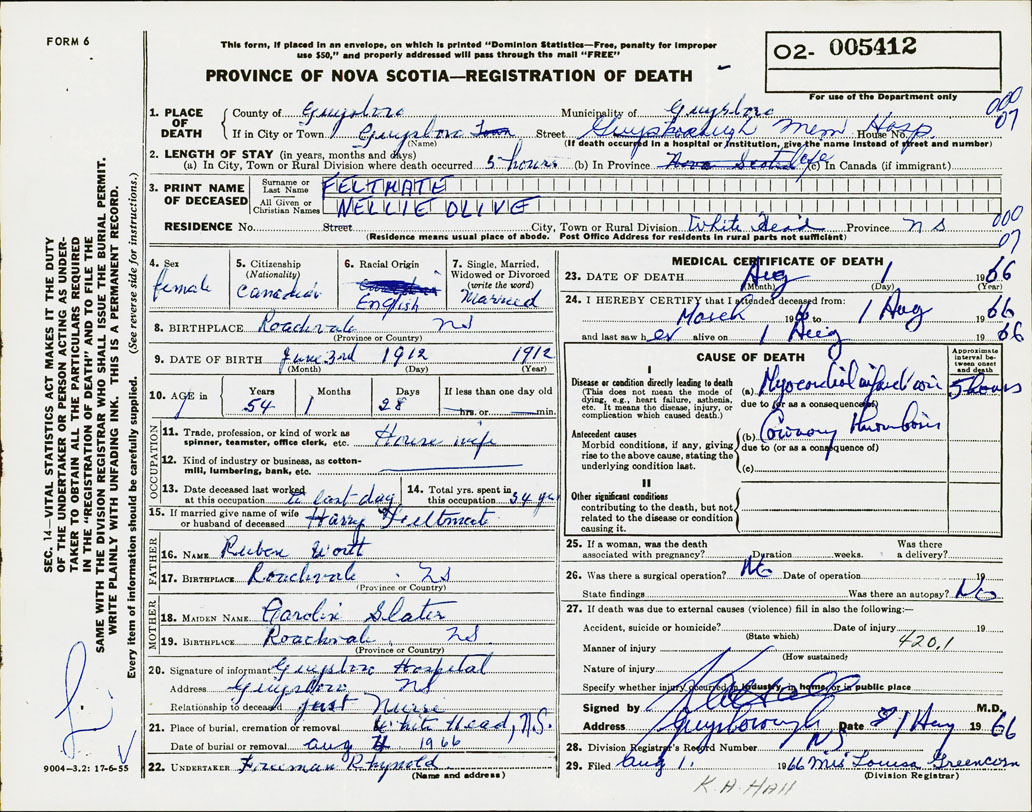 FORM 6
This form, if placed in an envelope, on which is printed "Dominion Statistics—Free, penalty for improper
use $50," and properly addressed will pass through the mail "FREE"
PROVINCE OF NOVA SCOTIA—REGISTRATION OF DEATH
02- 005412
For use of the Department only
1. PLACE OF DEATH
County of Guysboro Municipality of Guysboro
000
07
If in City or Town Guysboro Town Street Guysborough Mem Hosp. House No.
(Name) (If death occurred in a hospital or institution, give the name instead of street and number)
2. LENGTH OF STAY (in years, months and days)
(a) In City, Town or Rural Division where death occurred 5 hours (b) In Province Nova Scotia life (c) In Canada (if immigrant)
3. PRINT NAME OF DECEASED
Surname or Last Name FELTMATE
All Given or Christian Names NELLIE OLIVE
RESIDENCE No. Street City, Town or Rural Division White Head Province NS
000
07
(Residence means usual place of abode. Post Office Address for residents in rural parts not sufficient)
4. Sex
female
5. Citizenship
(Nationality)
Canadian
6. Racial Origin
English
7. Single, Married, Widowed or Divorced
(write the word)
Married
8. BIRTHPLACE Roachvale NS
(Province or Country)
9. DATE OF BIRTH June 3rd 1912 1912
(Month) (Day) (Year)
10. AGE in
Years 54
Months 1
Days 28
If less than one day old
hrs. or min.
OCCUPATION
11. Trade, profession, or kind of work as
spinner, teamster, office clerk, etc. House wife
12. Kind of industry or business, as cotton-
mill, lumbering, bank, etc.
13. Date deceased last worked
at this occupation to last day
14. Total yrs. spent in
this occupation 34 yrs
15. If married give name of wife
or husband of deceased Harry Feltmate
FATHER
16. NAME Reuben Worth
17. BIRTHPLACE Roachvale NS
(Province or Country)
MOTHER
18. MAIDEN NAME Carolin Slater
19. BIRTHPLACE Roachvale NS
(Province or Country)
20. Signature of informant Guysboro Hospital
Address Guysboro NS
Relationship to deceased just Nurse
21. Place of burial, cremation or removal White Head, N.S.
Date of burial or removal Aug 4 1966
22. UNDERTAKER Freeman Rhynold
(Name and address)
MEDICAL CERTIFICATE OF DEATH
23. DATE OF DEATH Aug 1 1966
(Month) (Day) (Year)
24. I HEREBY CERTIFY that I attended deceased from:
March 19 to 1 Aug 1966
and last saw her alive on 1 Aug 1966
CAUSE OF DEATH
Approximate interval between onset and death
I
Disease or condition directly leading to death
(This does not mean the mode of
dying, e.g., heart failure, asthenia,
etc. It means the disease, injury, or
complication which caused death.)
(a) Myocardial infarction 5 hours
due to (or as a consequence of)
Antecedent causes
Morbid conditions, if any, giving
rise to the above cause, stating the
underlying condition last.
(b) Coronary thrombosis
due to (or as a consequence of)
(c)
II
Other significant conditions
contributing to the death, but not
related to the disease or condition
causing it.
25. If a woman, was the death
associated with pregnancy? Duration weeks. Was there
a delivery?
26. Was there a surgical operation? No Date of operation 19
State findings Was there an autopsy? No
27. If death was due to external causes (violence) fill in also the following:—
Accident, suicide or homicide? Date of injury 19
(State which)
Manner of injury 420.1
(How sustained)
Nature of injury
Specify whether injury occurred in industry, in home, or in public place
Signed by M.D.
Address Guysborough NS Date 1 Aug 1966
28. Division Registrar's Record Number
29. Filed Aug 1. 1966 Mrs Louisa Greencorn
(Division Registrar)
K. A. Hall
SEC. 14—VITAL STATISTICS ACT MAKES IT THE DUTY
OF THE UNDERTAKER OR PERSON ACTING AS UNDER-
TAKER TO OBTAIN ALL THE PARTICULARS REQUIRED
IN THE "REGISTRATION OF DEATH" AND TO FILE THE
SAME WITH THE DIVISION REGISTRAR WHO SHALL ISSUE THE BURIAL PERMIT.
WRITE PLAINLY WITH UNFADING INK. THIS IS A PERMANENT RECORD.
Every item of information should be carefully supplied. (See reverse side for instructions.)
9004-3.2: 17-6-55